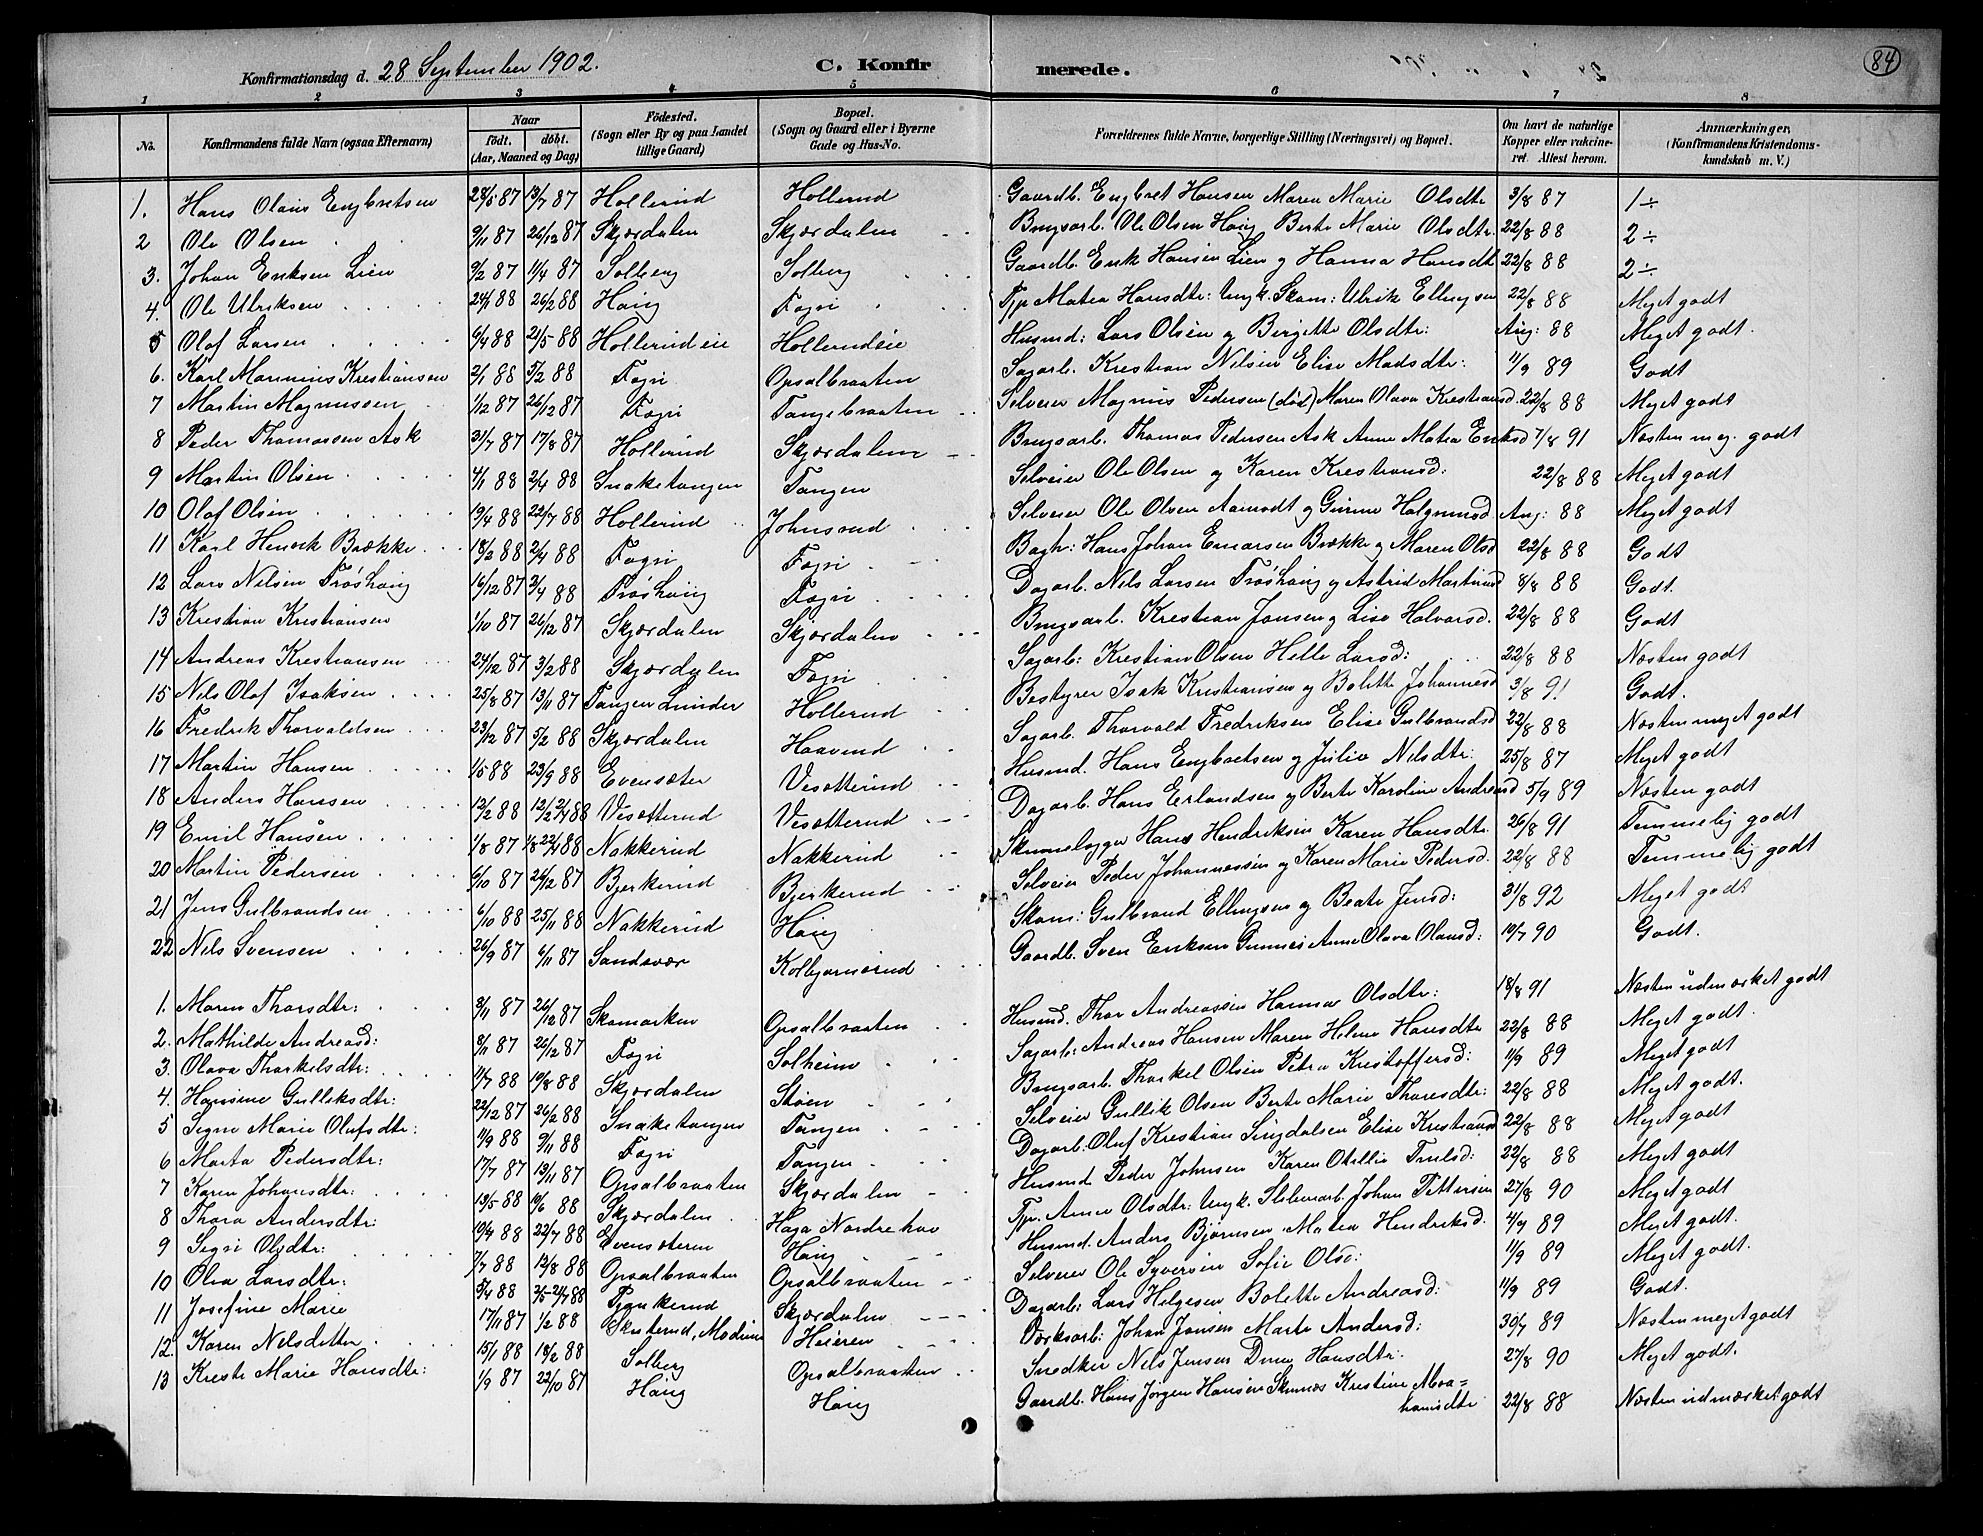 84
Konfirmationsdag d. 28 September 1902. C. Konfirmerede.
1 2 3 4 5 6 7 8
No. Konfirmandens fulde Navn (ogsaa Efternavn) Naar födt. döbt. (Aar, Maaned og Dag) Födested. (Sogn eller By og paa Landet tillige Gaard) Bopæl. (Sogn og Gaard eller i Byerne Gade og Hus-No. Forældrenes fulde Navne, borgerlige Stilling (Næringsvei) og Bopæl. Om havt de naturlige Kopper eller vakcineret. Attest herom. Anmærkninger, (Konfirmandens Kristendomskundskab m. V.)
1. Hans Olaus Engbretsen 28/5 87 13/7 87 Hollerud Hollerud Gaardb. Engbret Hansen Maren Marie Olsdtr 3/8 87 1÷
2 Ole Olsen 9/11 87 26/12 87 Skjærdalen Skjærdalen Brugsarb. Ole Olsen Haug Berte Marie Olsdtr. 22/8 88 2÷
3. Johan Eriksen Lien 9/2 87 11/4 87 Solberg Solberg Gaardb. Erik Hansen Lien og Hanna Hansdt 22/8 88 2÷
4. Ole Ulriksen 24/1 88 26/2 88 Haug Fagri Tjp Matea Hansdtr: Ungk. Skom: Ulrik Ellingsen 22/8 88 Meget godt
5 Olaf Larsen 6/4 88 21/5 88 Hollerudeie Hollerudeie Husmd: Lars Olsen og Birgitte Olsdtr: Aug: 88 Meget godt.
6. Karl Marinius Kristiansen 2/1 88 5/2 88 Fagri Opsalbraaten Sagarb. Kristian Nilsen Elise Madsdtr: 1/9 89 Godt
7 Martin Magnussen 1/12 87 26/12 87 Fagri Tangebraaten Selveier Magnus Pedersen (död) Maren Olava Kristiansd. 22/8 88 Meget godt
8 Peder Thomassen Ask 31/7 87 17/8 87 Hollerud Skjærdalen Brugsarb. Thomas Pedersen Ask Anne Matea Eriksd 7/8 91 Næsten meg. godt
9 Martin Olsen 4/1 88 2/4 88 Snaketangen Tangen Selveier Ole Olsen og Karen Kristiansd: 22/8 88 Meget godt
10 Olaf Olsen 19/4 88 22/7 88 Hollerud Johnsrud Selveier Ole Olsen Aamodt og Gunine Halgrimsd Aug: 88 Meget godt
11 Karl Henrik Brække 18/2 88 2/4 88 Fagri Fagri Bagh: Hans Johan Einarsen Brække og Maren Olsd 22/8 88 Godt
12 Lars Nilsen Frøshaug 16/12 87 3/4 88 Frøshaug Fagri Dagarb. Nils Larsen Frøshaug og Astrid Martinsd 8/8 88 Godt.
13 Kristian Kristiansen 1/10 87 26/12 87 Skjærdalen Skjærdalen Brugsarb. Kristian Jonsen og Lise Halvorsd. 22/8 88 Godt
14 Andreas Kristiansen 24/12 87 3/2 88 Skjærdalen Fagri Sagarb: Kristian Olsen Helle Larsd: 22/8 88 Næsten godt
15 Nils Olaf Isaksen 25/8 87 13/11 87 Tangen Lunder Hollerud Bestyrer Isak Kristiansen og Bolette Johannesd 3/8 91 Godt.
16 Fredrik Thorvaldsen 23/12 87 5/2 88 Skjærdalen Haavend Sagarb. Thorvald Fredriksen Elise Gulbrandsd 22/8 88 Næsten meget godt
17 Martin Hansen 1/5 88 23/9 88 Evensæter Vesætterud Husmd. Hans Engbretsen og Julie Nilsdtr: 25/8 87 Meget godt
18 Anders Hansen 12/2 88 12/2 2/4 88 Vesætterud Vesætterud Dagarb. Hans Erlandsen og Berte Karoline Andreasd 5/9 89 Næsten godt
19 Emil Hansen 1/8 87 1/8 22/4 88 Nakkerud Nakkerud Hans Hendriksen Karen Hansdtr 26/8 91 Temmelig godt
20 Martin Pedersen 6/10 87 26/12 87 Bjerkerud Bjerkerud Selveier Peder Johannessen og Karen Marie Pedersd. 22/8 88 Temmelig godt
21 Jens Gulbrandsen 6/10 88 25/11 88 Nakkerud Haug Skom: Gulbrand Ellingsen og Beate Jensd: 31/8 92 Meget godt
22 Nils Svensen 26/9 87 6/11 87 Sandsvær Kolbjørnsrud Gaardb. Sven Eriksen Anne Olava Olausd: 14/7 90 Godt.
1. Maren Thorsdtr: 3/11 87 26/12 87 Skamarken Opsalbraaten Husmd. Thor Andreassen Hanna Olsdtr: 18/8 91 Næsten udmærket godt
2. Mathilde Andreasd: 8/11 87 26/12 87 Fagri Solheim Sagarb: Andreas Hansen Maren Helene Hansdtr 22/8 88 Meget godt.
3. Olava Thorkelsdtr: 11/7 88 19/8 88 Skjærdalen Støen Brugsarb. Thorkel Olsen Petra Kristoffersd: 1/9 89 Meget godt
4. Hansine Gulliksdtr: 22/12 87 26/2 88 Snaketangen Tangen Selveier Gullik Olsen Berte Marie Thoresdtr: 22/8 88 Meget godt.
5 Signe Marie Olafsdtr: 1/9 88 9/11 88 Fagri Tangen Dagarb. Olaf Kristian Singdalsen Elise Kristiansd 22/8 88 Meget godt
6 Marta Pedersdtr: 17/7 87 13/11 87 Opsalbraaten Skjærdalen Husmd Peder Johnsen Karen Otillie Trulsd: 22/8 88 Meget godt
7 Karen Johansdtr: 13/5 88 10/6 88 Skjærdalen Haga Nordrehov Tjp. Anne Olsdtr: Ungk. Johan Pettersen 27/8 90 Meget godt
8 Thora Andersdtr: 19/4 88 22/7 88 Evensæteren Haug Husmd. Anders Bjørnsen Matea Hendriksd. 4/9 89 Meget godt.
9 Sigri Olsdtr: 7/7 88 12/8 88 Opsalbraaten Opsalbraaten Selveier Ole Syversen Sofie Olsd: 1/9 89 Meget godt.
10 Olea Larsdtr: 5/4 88 88 Skjærdalen Dagarb: Lars Helgesen Bolette Andreasd: 11/9 89 Godt.
11 Josefine Marie 17/11 87 1/2 88 Skuterud, Modum Heieren Værksarb: Johan Jansen Marte Andersd: 30/7 89 Næsten meget godt
12. Karen Nilsdatter 15/1 88 18/2 88 Solberg Opsalbraaten Snedker Nils Jensen Hansdtr: 27/8 90 Meget godt.
13 Kirsti Marie Hansdtr: 1/9 87 22/10 87 Haug Haug Gaardb. Hans Jørgen Hansen Kristine Abra=
hamsdtr 22/8 88 Næsten udmærket godt